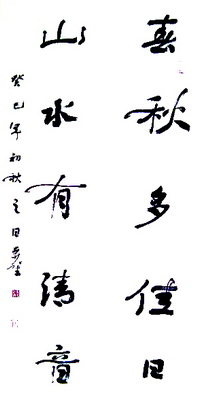 春秋多佳日
山水有清音
癸巳年初秋之日